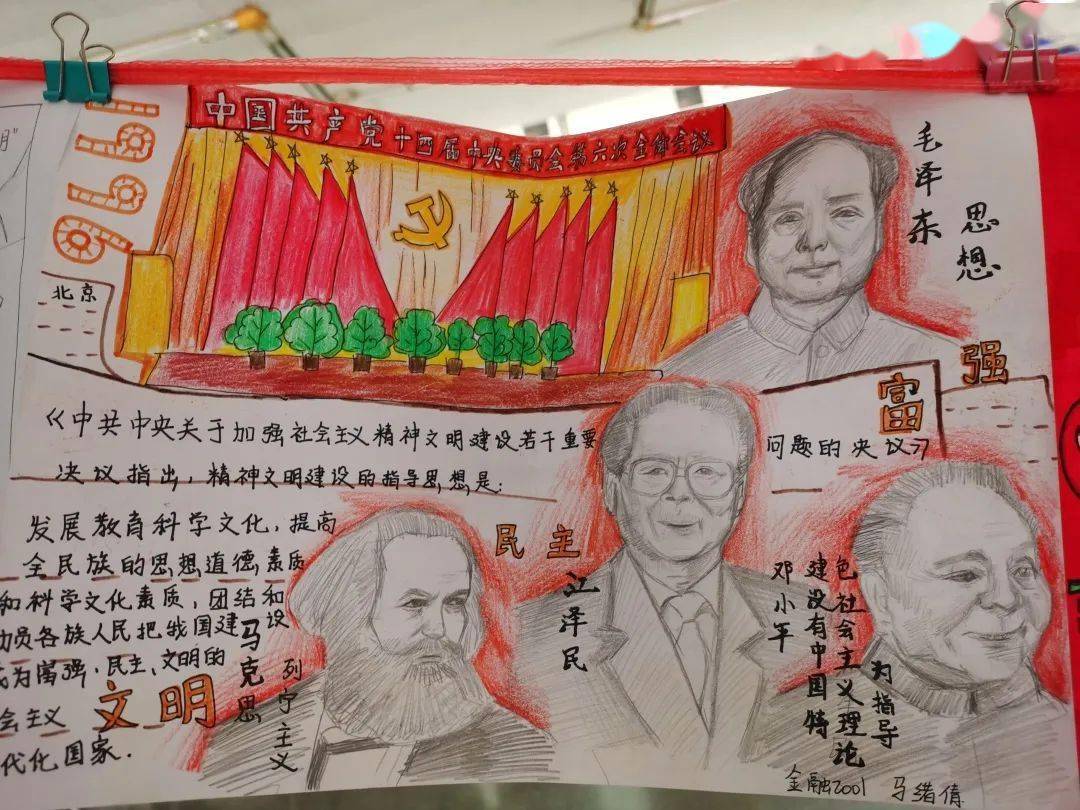 明”
1996
北京
中国共产党十四届中央委员会第六次全体会议
毛泽东
思想
富强
《中共中央关于加强社会主义精神文明建设若干重要问题的决议》
决议指出，精神文明建设的指导思想是：
发展教育科学文化，提高
全民族的思想道德素质
和科学文化素质，团结和
动员各族人民把我国建设
成为富强、民主、文明的
会主义
代化国家.
文明
马克思
列宁主义
民主
江泽民
邓小平
建设有中国特
色社会主义理论
为指导
金融2001